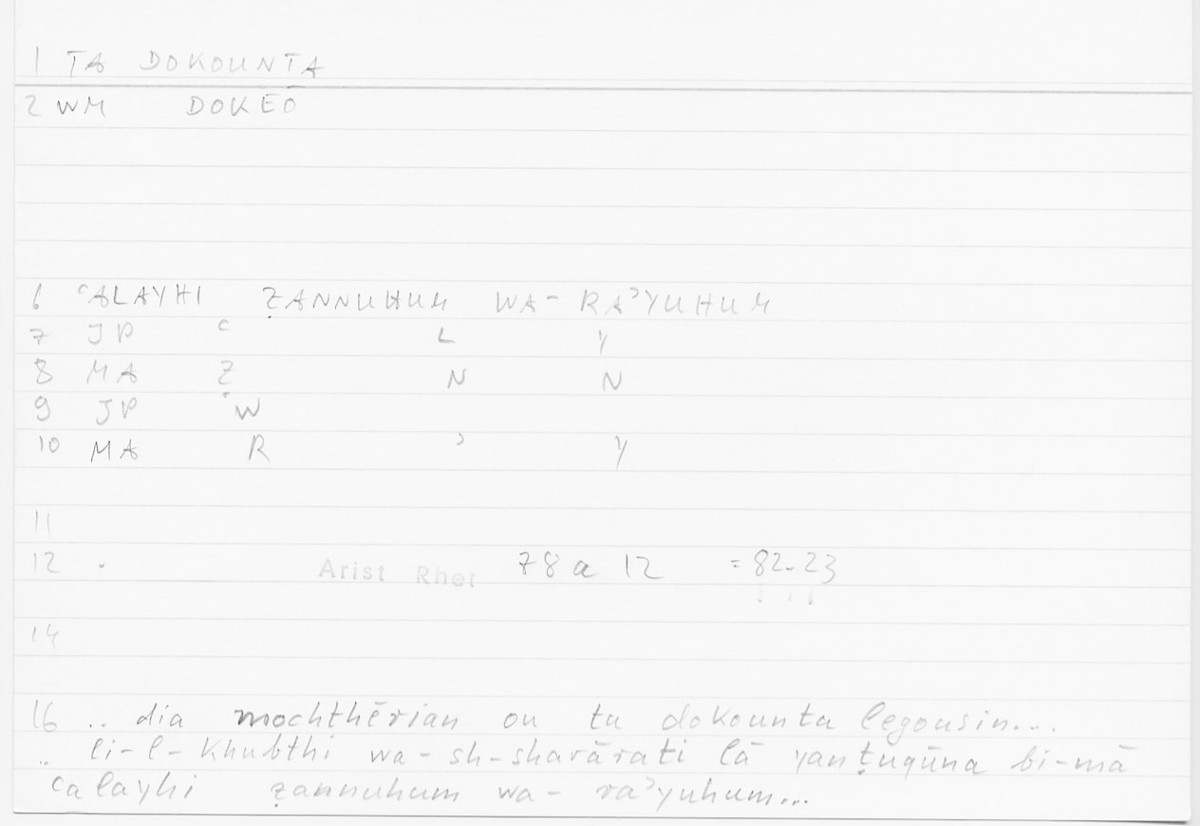 1 TA DOKOUNTA
2 WM DOKEŌ
6 ʿALAYHI ẒANNUHUM WA- RAʾYUHUM
7 JP ʿ L Y
8 MA Ẓ N N
9 JP W
10 MA R ʾ Y
11
12 . Arist Rhet 78 a 12 = 82.23
14
16 .. dia mochthērian ou ta dokounta legousin...
.. li-l-khubthi wa-sh-sharārati lā yanṭuqūna bi-mā
ʿalayhi ẓannuhum wa- raʾyuhum...